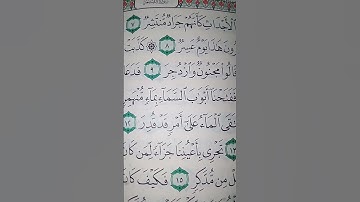 الْأَجْدَاثِ كَأَنَّهُمْ جَرَادٌ مُّنتَشِرٌ ٧
هَٰذَا يَوْمٌ عَسِرٌ ٨ كَذَّبَتْ
قَالُوا مَجْنُونٌ وَازْدُجِرَ ٩
فَفَتَحْنَا أَبْوَابَ السَّمَاءِ بِمَاءٍ مُّنْهَمِرٍ
الْمَاءُ عَلَىٰ أَمْرٍ قَدْ قُدِرَ ١٢
١٣ تَجْرِي بِأَعْيُنِنَا جَزَاءً لِّمَن كَانَ
مِن مُّدَّكِرٍ ١٥ فَكَيْفَ كَانَ